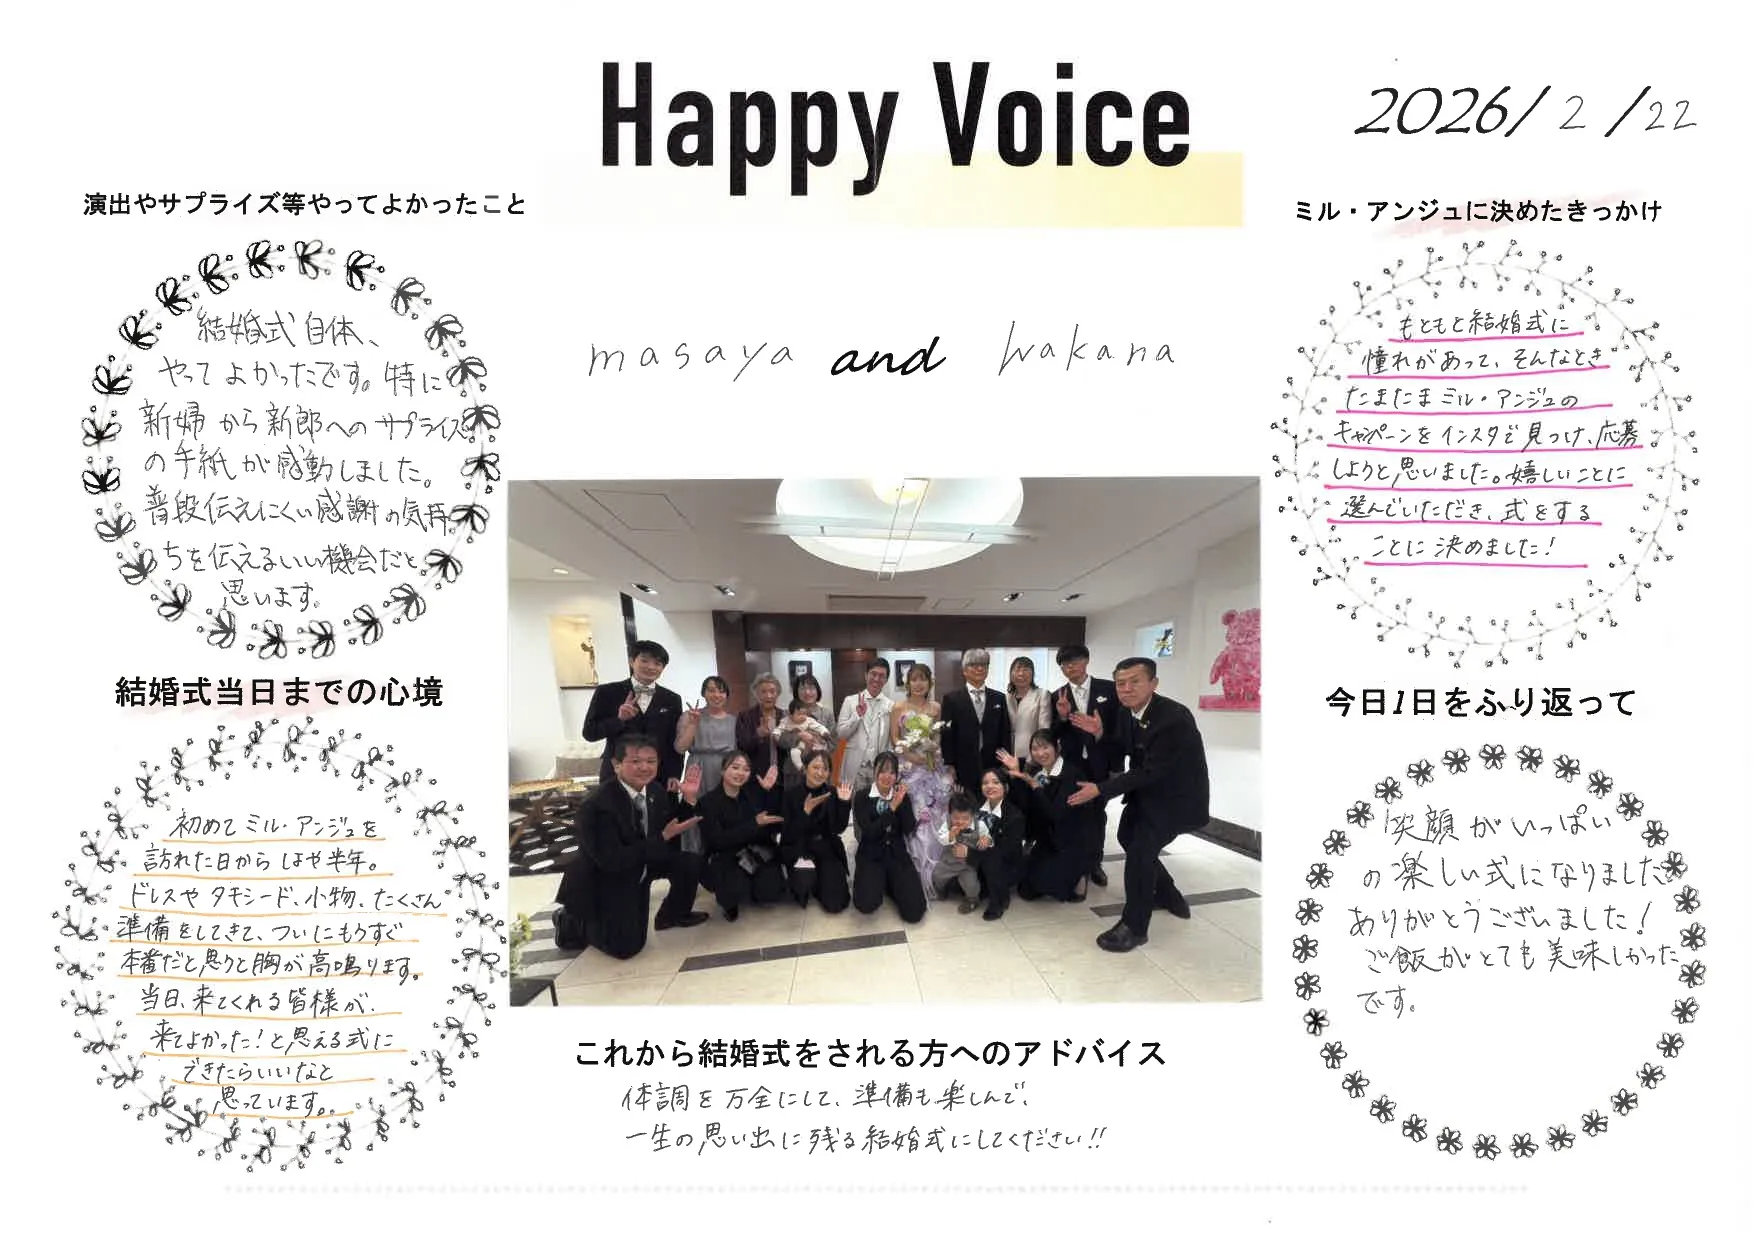 Happy Voice
2026/2/22
演出やサプライズ等やってよかったこと
結婚式自体、
やってよかったです。特に
新婦から新郎へのサプライズ
の手紙が感動しました。
普段伝えにくい感謝の気持
ちを伝えるいい機会だと
思います。
ミル・アンジュに決めたきっかけ
もともと結婚式に
憧れがあって、そんなとき
たまたまミル・アンジュの
キャンペーンをインスタで見つけ、応募
しようと思いました。嬉しいことに
選んでいただき、式をする
ことに決めました!
masaya and wakana
結婚式当日までの心境
初めてミル・アンジュを
訪れた日からはや半年。
ドレスやタキシード、小物、たくさん
準備をしてきて、ついにもうすぐ
本番だと思うと胸が高鳴ります。
当日、来てくれる皆様が、
来てよかった!と思える式に
できたらいいなと
思っています。
今日1日をふり返って
笑顔がいっぱい
の楽しい式になりました。
ありがとうございました!
ご飯がとても美味しかった
です。
これから結婚式をされる方へのアドバイス
体調を万全にして、準備も楽しんで、
一生の思い出に残る結婚式にしてください!!